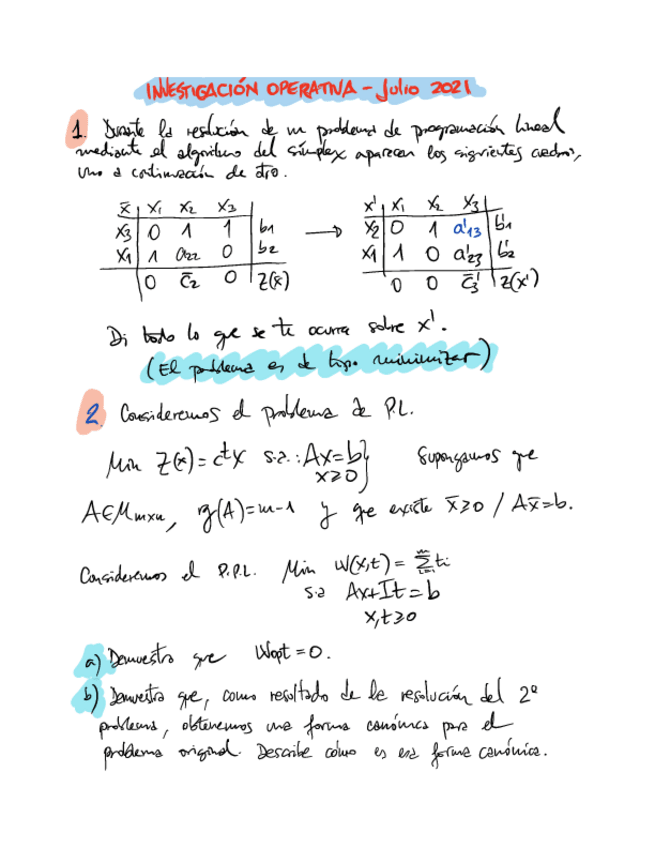 INVESTIGACIÓN OPERATIVA - Julio 2021
1. Durante la resolución de un problema de programación lineal
mediante el algoritmo del símplex aparecen los siguientes cuadros,
uno a continuación de otro.
x̄ | x₁ x₂ x₃
x₃ | 0 1 1 | b₁
x₁ | 1 a₂₂ 0 | b₂
0 c̄₂ 0 | Z(x̄)
→
x' | x₁ x₂ x₃
x₂ | 0 1 a'₁₃ | b'₁
x₁ | 1 0 a'₂₃ | b'₂
0 0 c̄'₃ | Z(x')
Di todo lo que se te ocurra sobre x'.
(El problema es de tipo minimizar)
2. Consideremos el problema de P.L.
Min Z(x) = cᵗx s.a.: Ax=b} Supongamos que
x≥0
A∈Mmxn, rg(A)=m-1 y que existe x̄≥0 / Ax̄=b.
Consideremos el P.P.L. Min W(x,t) = Σᵢ₌₁ᵐ tᵢ
s.a Ax+It=b
x,t≥0
a) Demuestra que Wopt = 0.
b) Demuestra que, como resultado de la resolución del 2º
problema, obtenemos una forma canónica para el
problema original. Describe cómo es esa forma canónica.